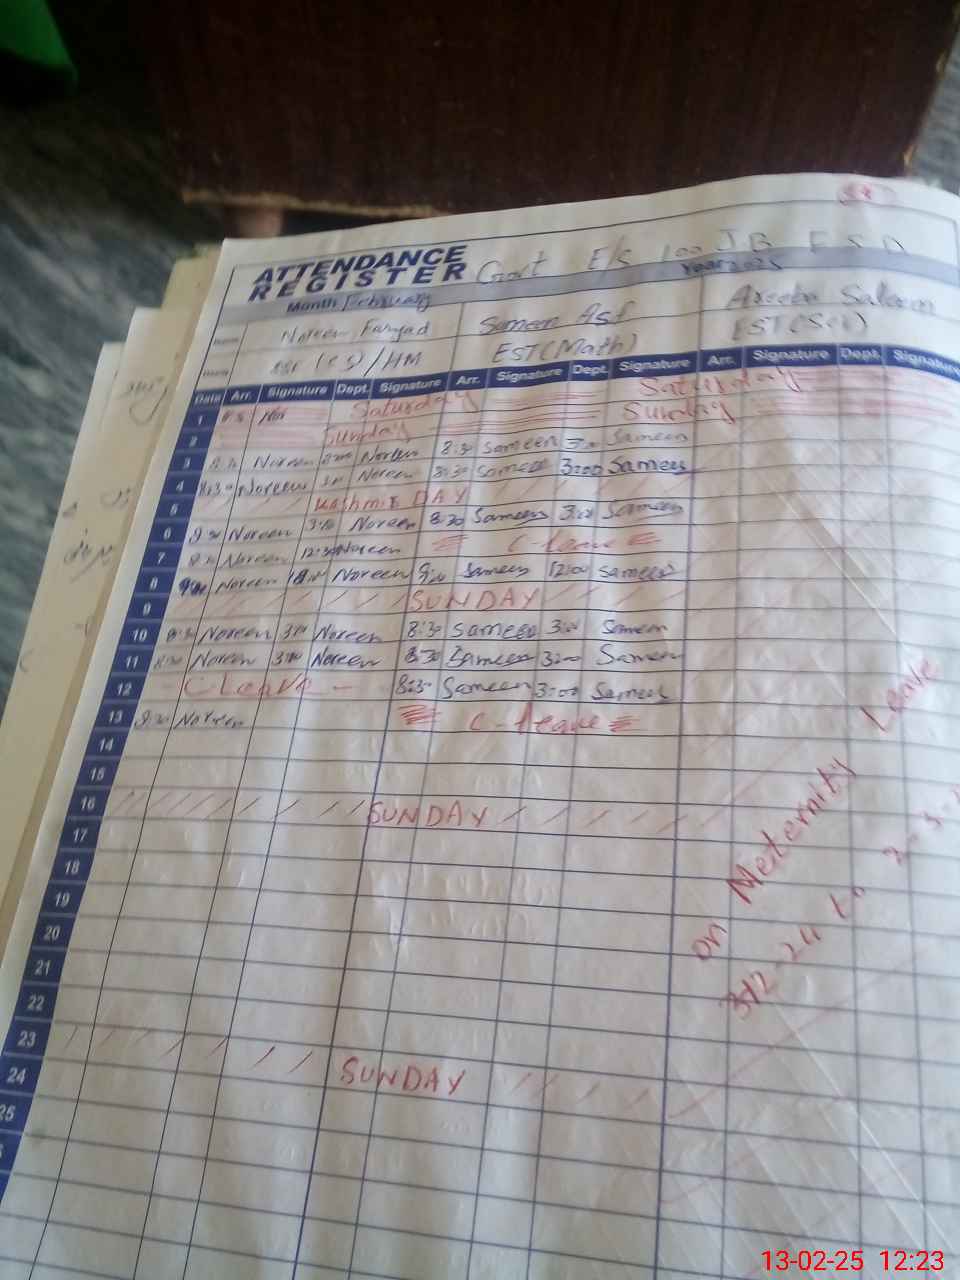 ATTENDANCE
REGISTER Govt E/S 100 JB FSD
Month February Year 2025
Name Noreen Faryad Sameen Asf Areeba Saleem
/HM EST(Math) EST(Sci)
Date Arr. Signature Dept. Signature Arr. Signature Dept. Signature Arr. Signature Dept. Signature
1 Saturday Saturday
2 Sunday Sunday
3 Noreen Noreen 8:30 Sameen 3:00 Sameen
4 8:30 Noreen Noreen 8:30 Sameen 3:00 Sameen
5 Kashmir DAY
6 Noreen Noreen 8:30 Sameen 3:00 Sameen
7 Noreen 12:30 Noreen C-leave
8 Noreen Noreen Sameen 12:00 Sameen
9 SUNDAY
10 8:30 Noreen 3:00 Noreen 8:30 Sameen 3:00 Sameen
11 8:30 Noreen 3:00 Noreen 8:30 Sameen 3:00 Sameen
12 - C Leave - 8:30 Sameen 3:00 Sameen
13 8:30 Noreen C-leave
14
15
16 SUNDAY
17
18
19
20
21
22
23 SUNDAY
24
25
on Meternity Leave
to
13-02-25 12:23